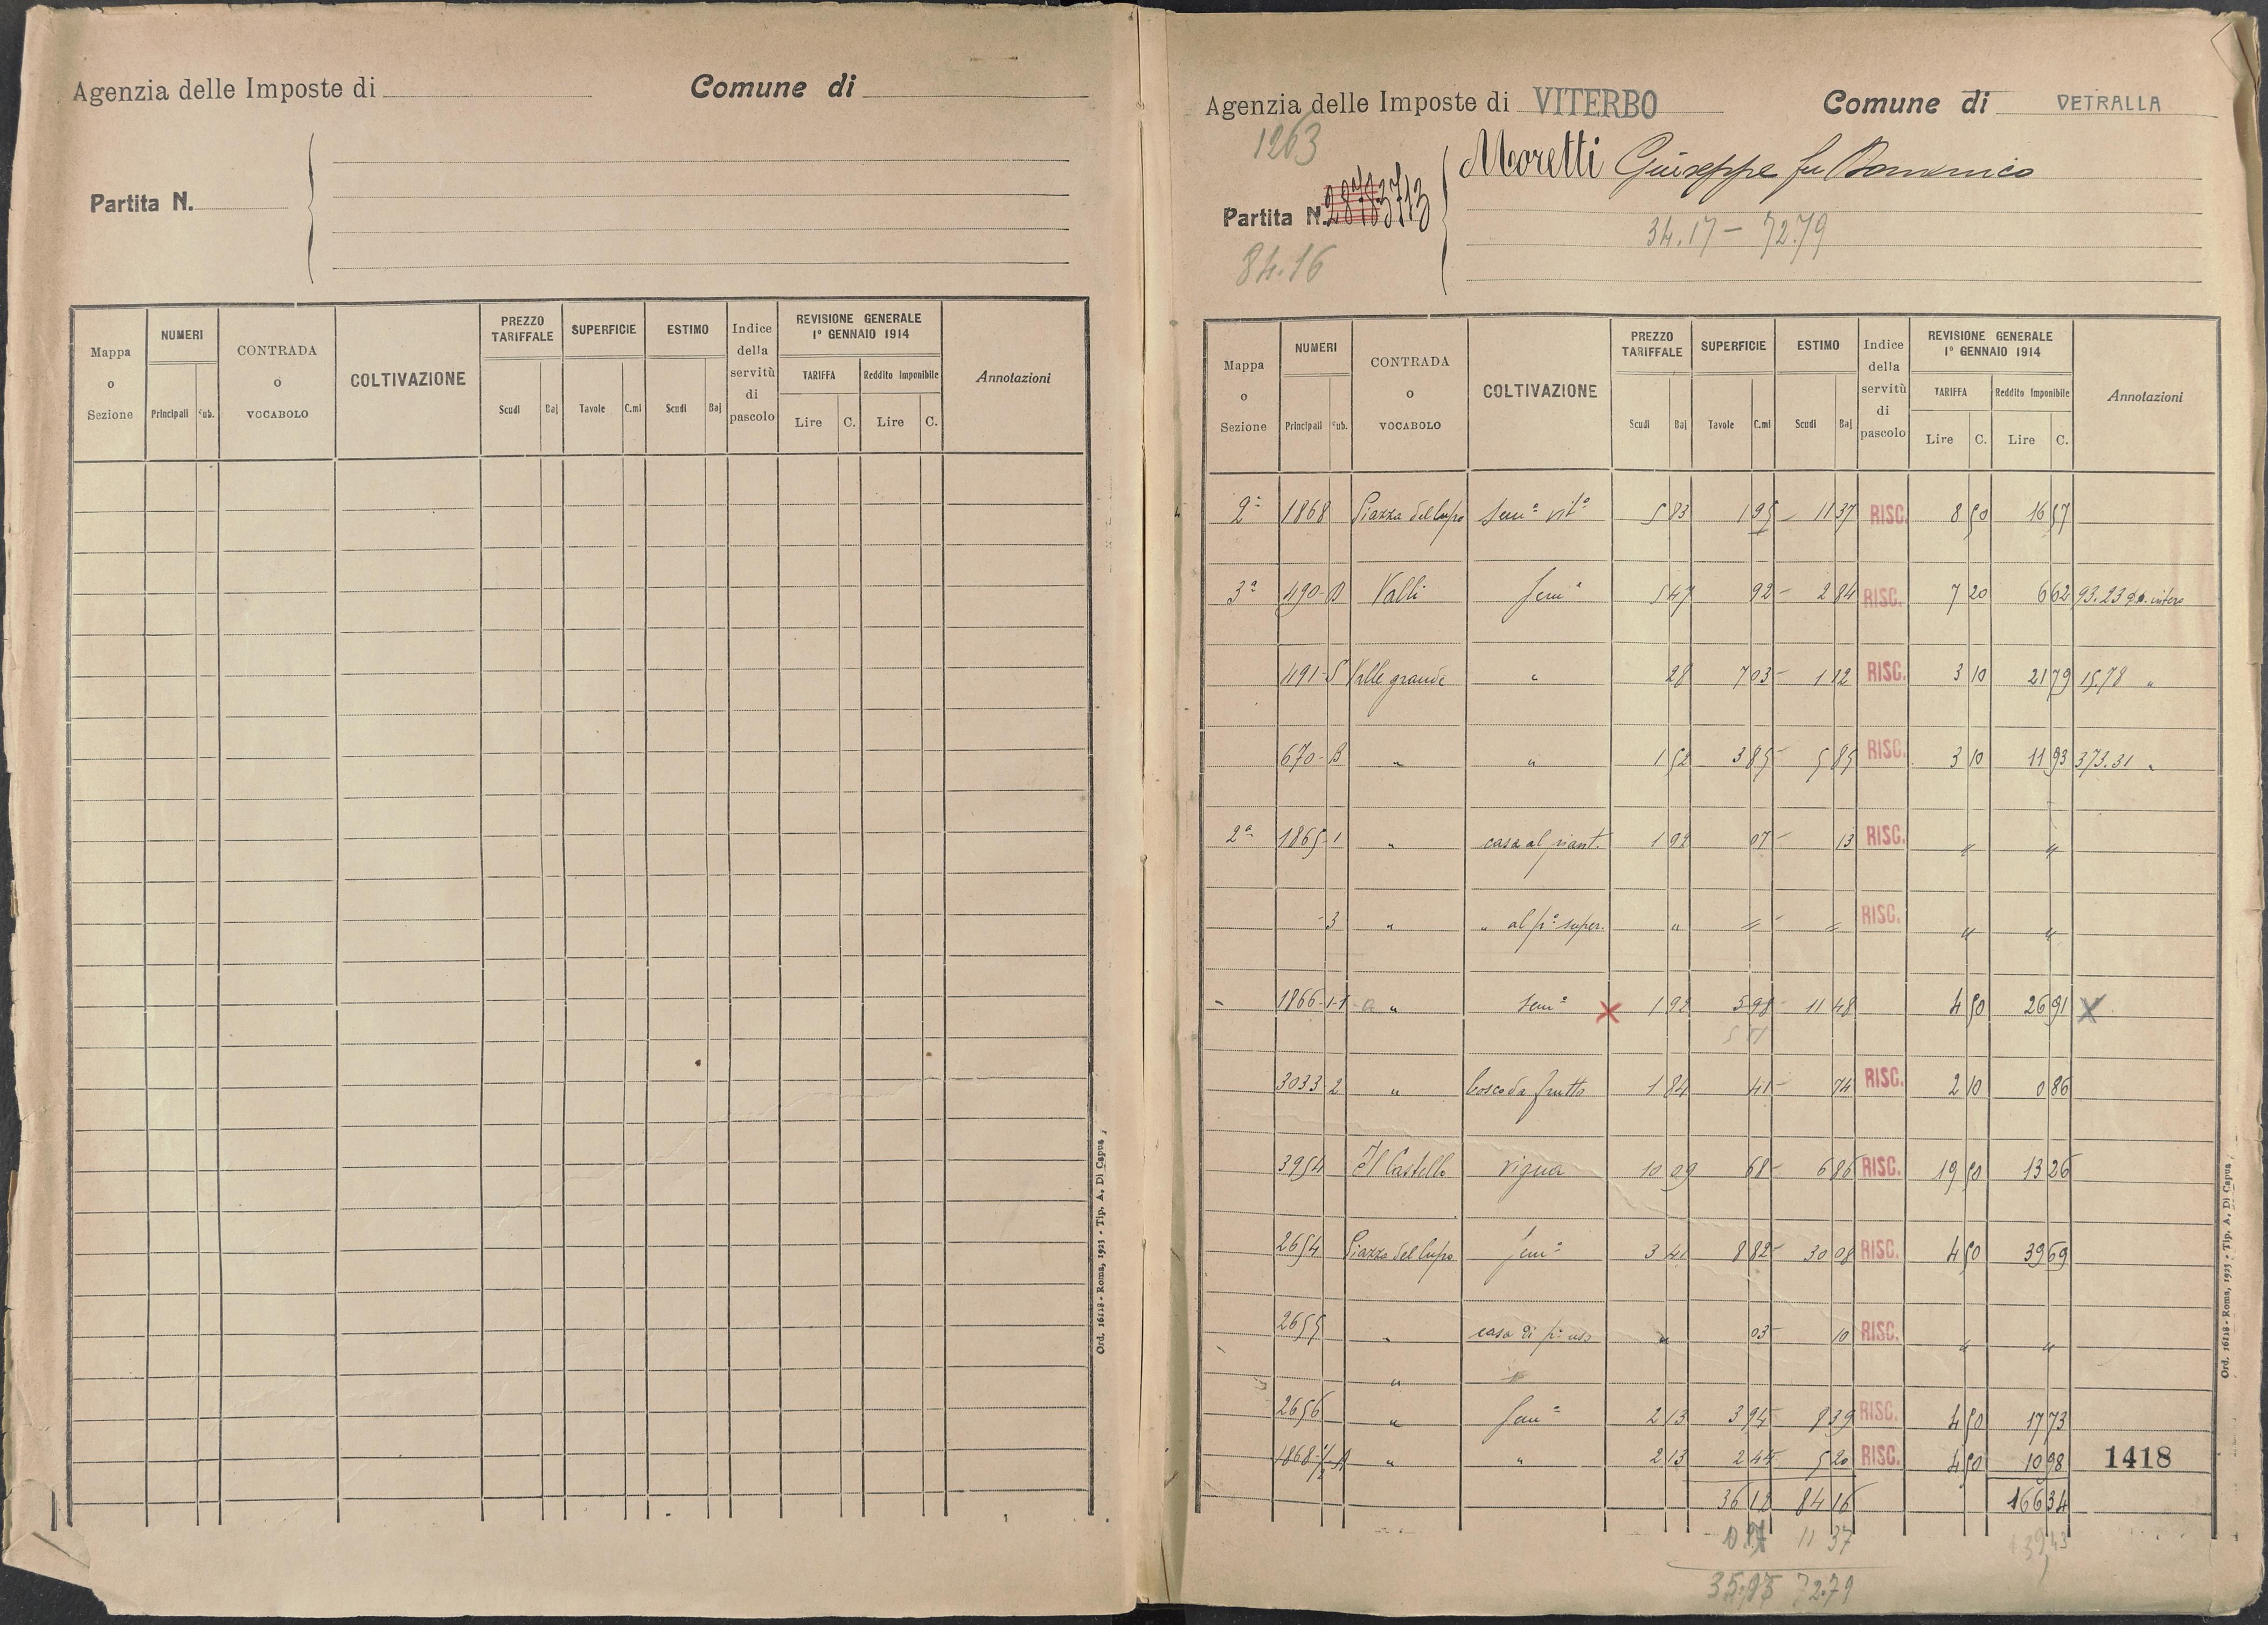 Agenzia delle Imposte di
Comune di
Partita N.
Mappa o Sezione
NUMERI
Principali
Sub.
CONTRADA o VOCABOLO
COLTIVAZIONE
PREZZO TARIFFALE
Scudi
Baj
SUPERFICIE
Tavole
C.mi
ESTIMO
Scudi
Baj
Indice della servitù di pascolo
REVISIONE GENERALE
1º GENNAIO 1914
TARIFFA
Reddito Imponibile
Lire
C.
Lire
C.
Annotazioni
Ord. 16118 - Roma, 1923 - Tip. A. Di Capua
Agenzia delle Imposte di VITERBO
Comune di VETRALLA
1263
Partita N. 2878 3713
Moretti Giuseppe fu Domenico
34.17 - 72.79
84.16
Mappa o Sezione
NUMERI
Principali
Sub.
CONTRADA o VOCABOLO
COLTIVAZIONE
PREZZO TARIFFALE
Scudi
Baj
SUPERFICIE
Tavole
C.mi
ESTIMO
Scudi
Baj
Indice della servitù di pascolo
REVISIONE GENERALE
1º GENNAIO 1914
TARIFFA
Reddito Imponibile
Lire
C.
Lire
C.
Annotazioni
2ª 1868 Piazza del Lupo Semº vitº 5 83 1 95 - 11 37 RISC. 8 50 16 57
3ª 490-B Valli Semº 5 47 92 - 2 84 RISC. 7 20 6 62 93.23 intero
491-S Valle grande " 28 7 03 - 1 82 RISC. 3 10 21 79 15.78 "
670-B " " 1 52 3 85 - 5 85 RISC. 3 10 11 93 373.31 "
2ª 1865-1 " casa al piant. 1 92 07 - 13 RISC. " "
-3 " " al pº super. " = - = RISC. " "
1866-1-1-a " Semº X 1 92 5 98 - 11 48 4 50 26 91 X
3033-2 " bosco da frutto 1 84 41 - 74 RISC. 2 10 0 86
3954 Il Castello vigna 10 09 68 - 6 86 RISC. 19 50 13 26
2654 Piazza del Lupo Semº 3 41 8 82 - 30 08 RISC. 4 50 39 69
2655 " casa di pº uso " 03 - 10 RISC. " "
"
2656 " Semº 2 13 3 94 - 8 39 RISC. 4 50 17 73
1868 " " 2 13 2 44 - 5 20 RISC. 4 50 10 98 1418
36 12 84 16 166 34
11 37
139 43
72.79
Ord. 16118 - Roma, 1923 - Tip. A. Di Capua